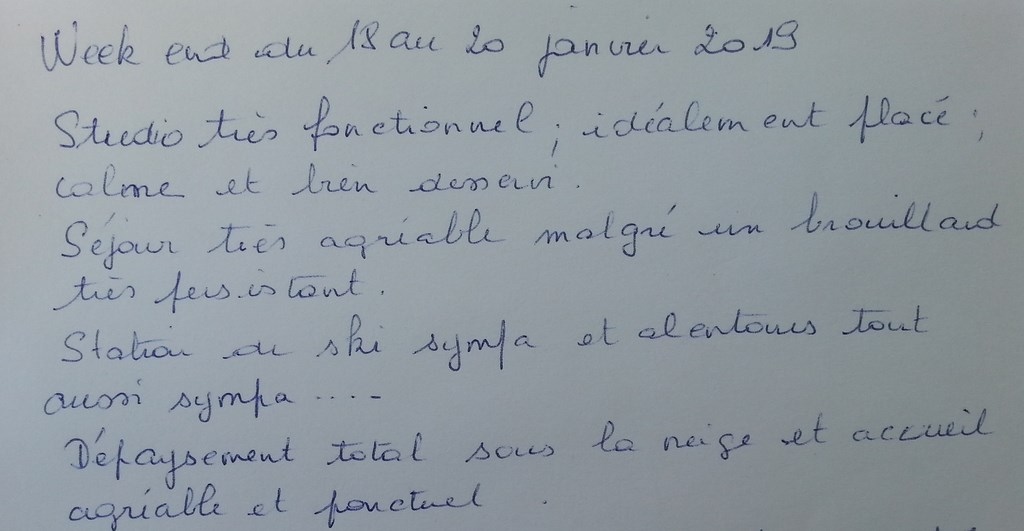 Week end du 18 au 20 janvier 2019
Studio très fonctionnel ; idéalement placé ;
calme et bien desservi.
Séjour très agréable malgré un brouillard
très persistant.
Station de ski sympa et alentours tout
aussi sympa .....
Dépaysement total sous la neige et accueil
agréable et ponctuel .